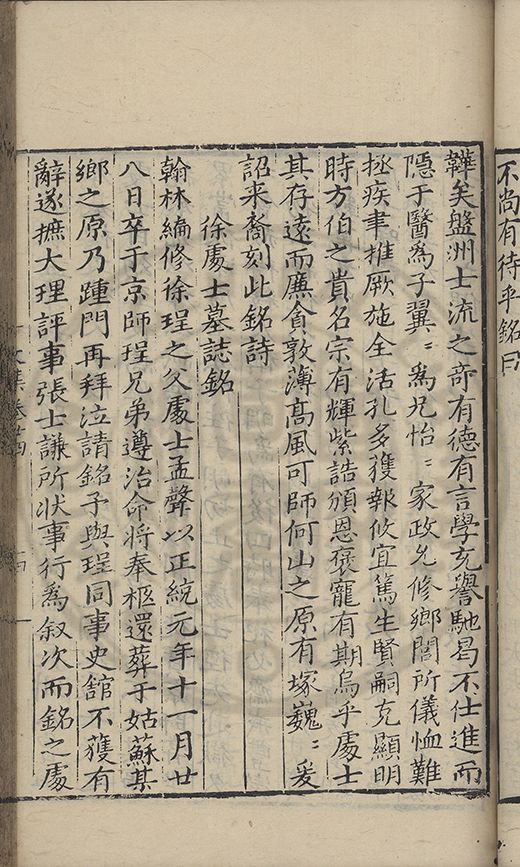 不尚有待乎銘曰
韡矣盤洲士流之奇有德有言學充譽馳曷不仕進而
隱于醫為子翼〻為兄怡〻家政允修鄉閭所儀恤難
拯疾聿推厥施全活孔多獲報攸宜篤生賢嗣克顯明
時方伯之貴名宗有輝紫誥頒恩褒寵有期烏乎處士
其存遠而廉貪敦薄高風可師何山之原有塚巍〻爰
詔来裔刻此銘詩
徐處士墓誌銘
翰林編修徐珵之父處士孟聲以正統元年十一月廿
八日卒于京師珵兄弟遵治命將奉柩還葬于姑蘇其
鄉之原乃踵門再拜泣請銘予與珵同事史舘不獲有
辭遂摭大理評事張士謙所状事行為叙次而銘之處
文集卷廿四